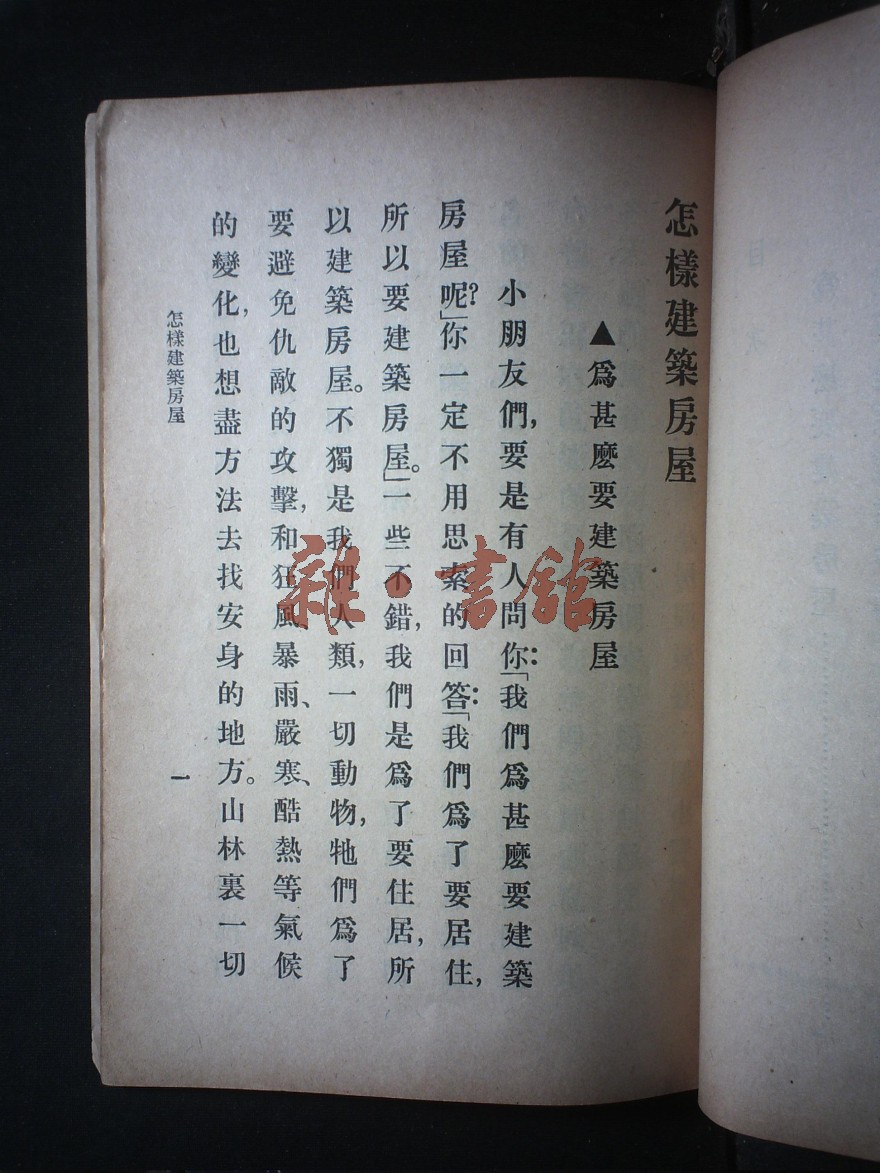 怎樣建築房屋
▲爲甚麽要建築房屋
小朋友們，要是有人問你：「我們爲甚麽要建築
房屋呢？」你一定不用思索的回答：「我們爲了要居住，
所以要建築房屋。」一些不錯，我們是爲了要住居，所
以建築房屋。不獨是我們人類，一切動物，牠們爲了
要避免仇敵的攻擊，和狂風、暴雨、嚴寒、酷熱等氣候
的變化，也想盡方法去找安身的地方。山林裏一切
怎樣建築房屋
一
雜·書館